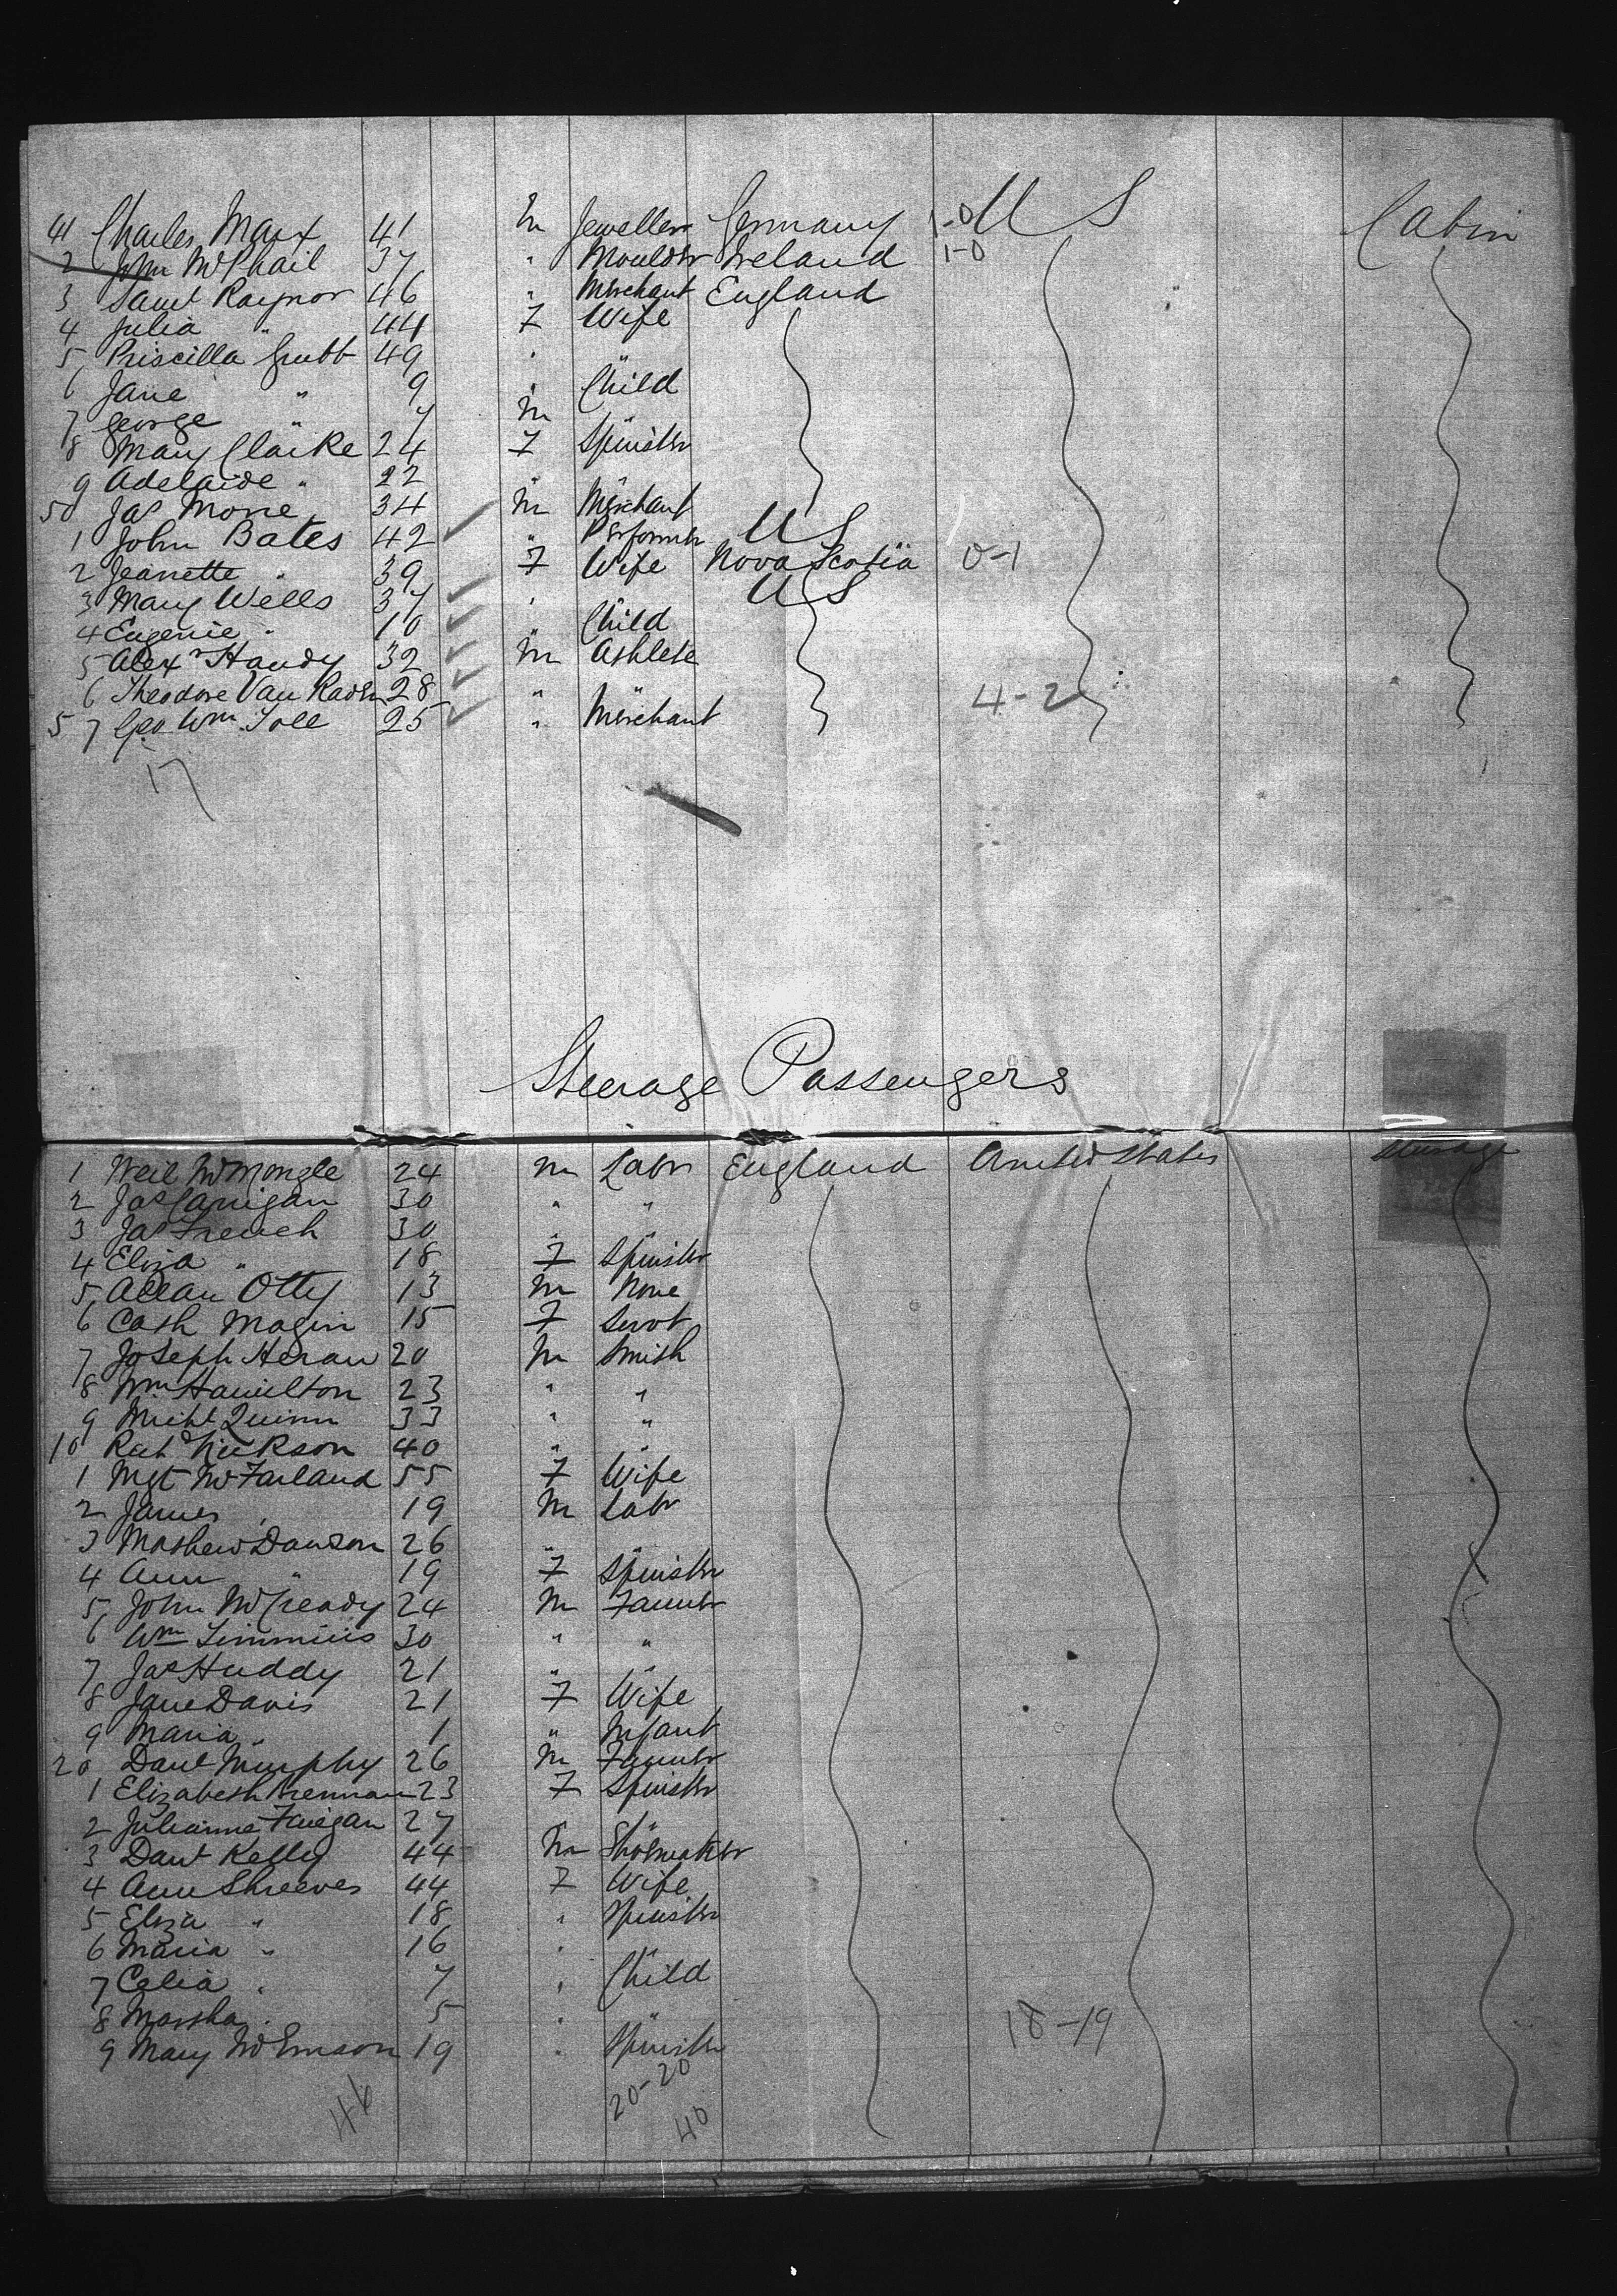 41 Charles Marx 41 m Jeweller Germany 1-0 U S Cabin
2 John McPhail 37 " Moulder Ireland 1-0
3 Saml Raynor 46 " Merchant England
4 Julia " 44 F Wife
5 Priscilla Grubb 49 " "
6 Jane " 9 " Child
7 George " 7 m "
8 Mary Clarke 24 F Spinster
9 Adelaide " 22 " "
50 Jas Morie 34 m Merchant
1 John Bates 42 " Performer U S
2 Jeanette " 39 F Wife Nova Scotia 0-1
3 Mary Wells 37 " " U S
4 Eugenie " 10 " Child
5 Alexr Handy 32 m Athlete
6 Theodore Van Raden 28 " " 4-2
57 Geo Wm Tole 25 " Merchant
17
Steerage Passengers
1 Neil McMongle 24 m Labr England United States Steerage
2 Jas Carrigan 30 " "
3 Jas French 30 " "
4 Eliza " 18 F Spinster
5 Allan Otty 13 m None
6 Cath Magin 15 F Servt
7 Joseph Heran 20 m Smith
8 Wm Hamilton 23 " "
9 Michl Quinn 33 " "
10 Richd Nickson 40 " "
1 Mgt McFarland 55 F Wife
2 James " 19 m Labr
3 Mathew Dawson 26 " "
4 Ann " 19 F Spinster
5 John McCready 24 m Farmer
6 Wm Timmins 30 " "
7 Jas Huddy 21 " "
8 Jane Davis 21 F Wife
9 Maria " 1 " Infant
20 Danl Murphy 26 m Farmer
1 Elizabeth Brennan 23 F Spinster
2 Julianne Finegan 27 " "
3 Danl Kelly 44 m Shoemaker
4 Ann Shreeves 44 F Wife
5 Eliza " 18 " Spinster
6 Maria " 16 " "
7 Celia " 7 " Child
8 Martha " 5 " "
9 Mary McEmson 19 " Spinster 18-19
46 20-20
40